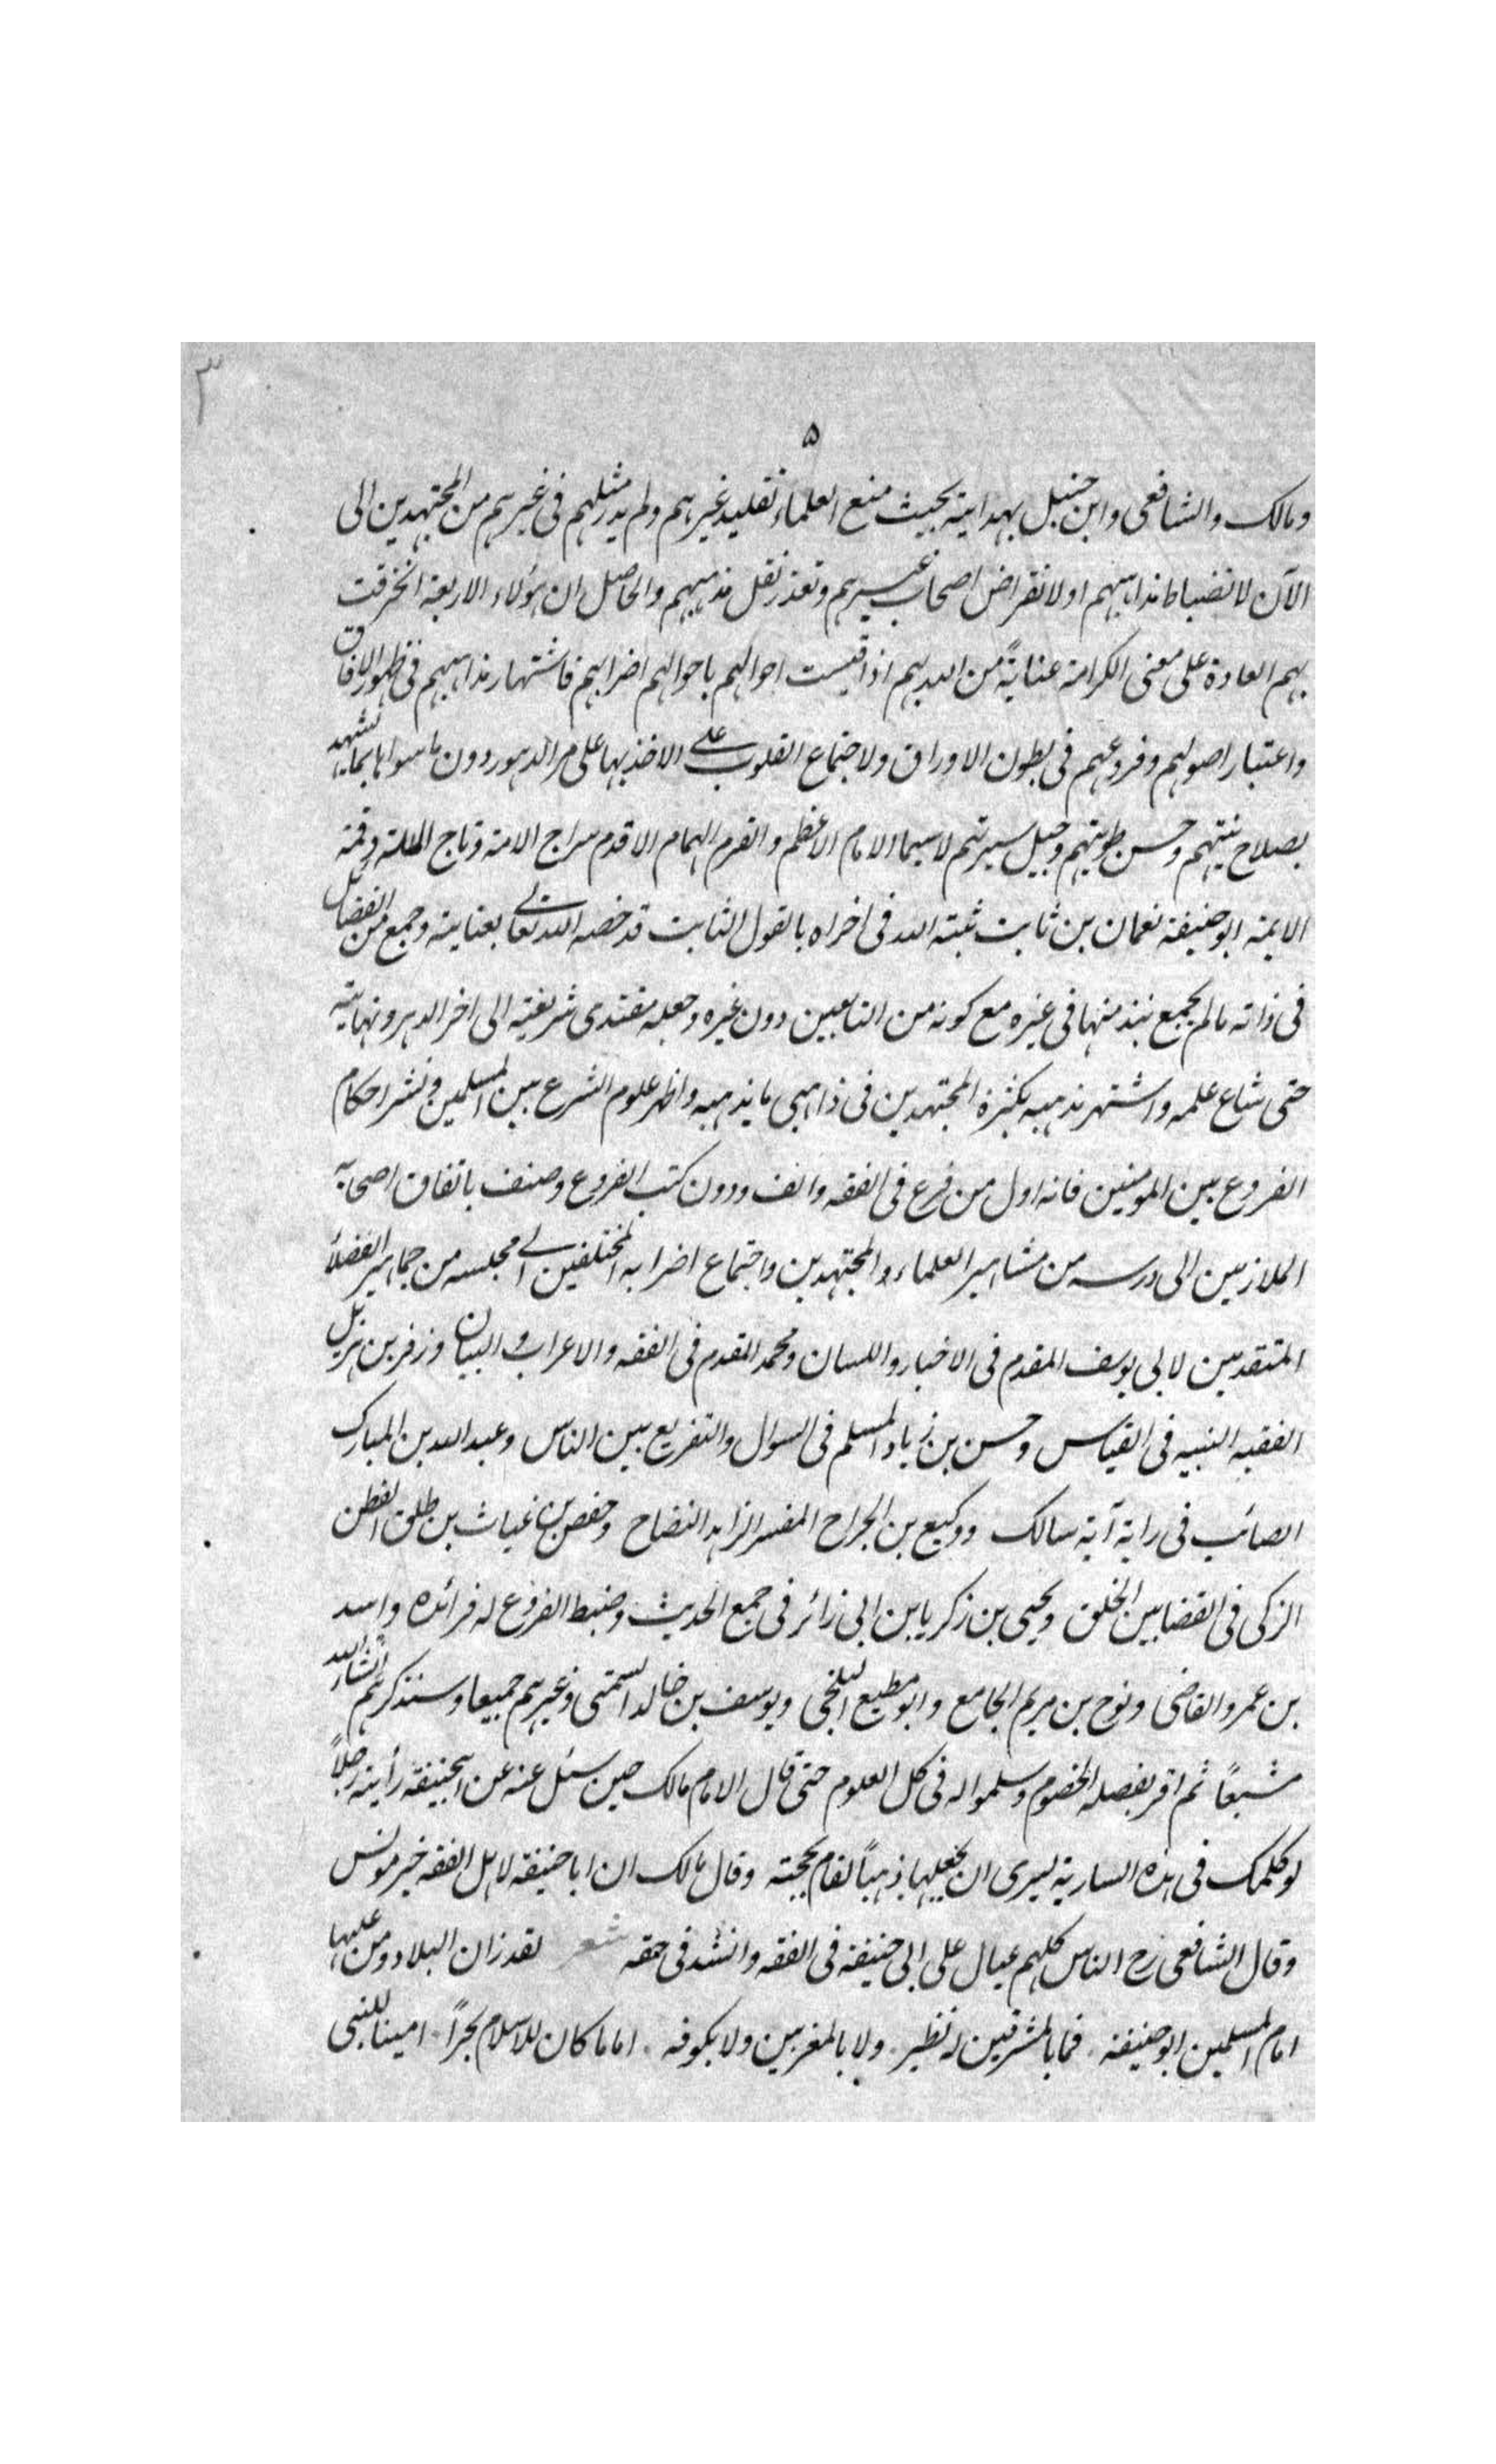 ٣
٥
ومالك والشافعى وابن حنبل بهدايته بحيث منع العلماء تقليد غيرهم ولم يدر مثلهم فى غيرهم من المجتهدين الى
الآن لانضباط مذاهبهم او لانقراض اصحاب غيرهم وتعذر نقل مذهبهم والحاصل ان هؤلاء الاربعة انخرقت
بهم العادة على معنى الكرامة عناية من الله بهم اذا قيست احوالهم باحوالهم اضرابهم فاشتهار مذاهبهم فى ظهور الافاق
واعتبار اصولهم وفروعهم فى بطون الاوراق ولاجتماع القلوب على الاخذ بها على مر الدهور دون ما سواها بما يشهد
بصلاح نيتهم وحسن طويتهم وجميل سيرتهم لاسيما الامام الاعظم والقرم الهمام الاقدم سراج الامة وتاج الملة وقمة
الايمة ابو حنيفة نعمان بن ثابت ثبته الله فى اخراه بالقول الثابت قد خصه الله تعالى بعنايته وجمع من الفضائل
فى ذاته مالم يجمع نبذ منها فى غيره مع كونه من التابعين دون غيره وجعله مقتدى شريعته الى اخر الدهر ونهايته
حتى شاع علمه واشتهر مذهبه بكثرة المجتهدين فى ذاهبى مايذهبه واظهر علوم الشرع بين المسلمين ونشر احكام
الفروع بين المومنين فانه اول من فرع فى الفقه والف ودون كتب الفروع وصنف باتفاق اصحابه
الملازمين الى درسه من مشاهير العلماء والمجتهدين واجتماع اضرابه المختلفين الى مجلسه من جماهير الفضلاء
المتقدمين لابى يوسف المقدم فى الاخبار واللسان ومحمد المقدم فى الفقه والاعراب والبيان وزفر بن هزيل
الفقيه النبيه فى القياس وحسن بن زياد المسلم فى السوال والتفريع بين الناس وعبد الله بن المبارك
الصائب فى راية آية سالك ووكيع بن الجراح المفسر الزاهد النضاح وحفص بن غياث بن طلق الفطن
الزكى فى القضا بين الخلق ويحيى بن زكريا بن ابى زائر فى جمع الحديث وضبط الفروع له فرائده واسد
بن عمرو القاضى ونوح بن مريم الجامع وابو مطيع البلخى ويوسف بن خالد السمتى وغيرهم جميعا وسنذكرهم انشاء الله
مشبعاً ثم اقر بفضله الخصوم وسلمواله فى كل العلوم حتى قال الامام مالك حين سئل عنه عن ابيحنيفة رأيته رجلاً
لو كلمك فى هذه السارية ليرى ان يجعلها ذهباً لقام بحجته وقال مالك ان ابا حنيفة لاهل الفقه خير مونس
وقال الشافعى رح الناس كلهم عيال على ابى حنيفة فى الفقه وانشد فى حقه شعر لقد زان البلاد ومن عليها
امام المسلمين ابو حنيفة . فما بالمشرقين له نظير . ولا بالمغربين ولا بكوفه . اماما كان للاسلام بحراً . امينا للنبى